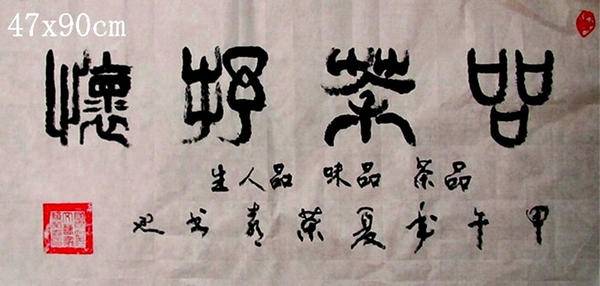 47x90cm
品茶抒懷
品茶 品味 品人生
甲午年夏